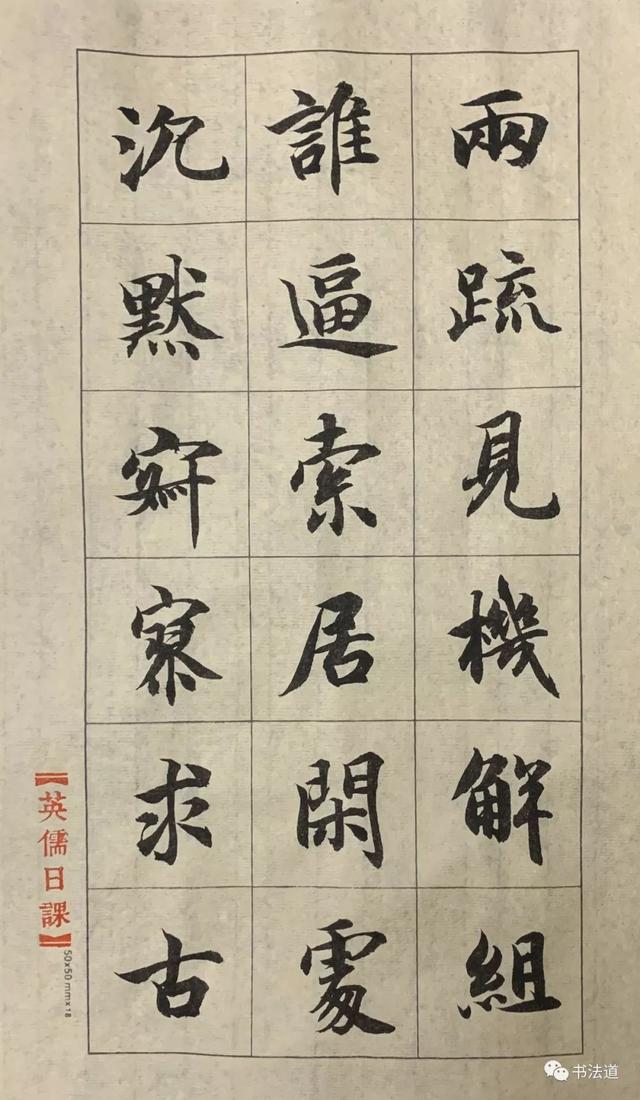 兩疏見機解組
誰逼索居閑處
沉默寂寥求古
【英儒日課】
50x50mmx18
书法道